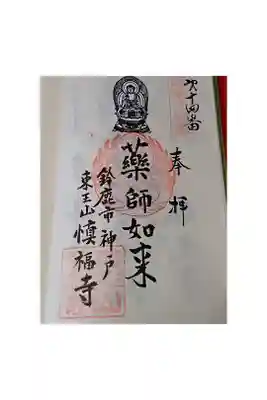 第十四番
奉拝
藥師如来
鈴鹿市神戸
東王山慎福寺